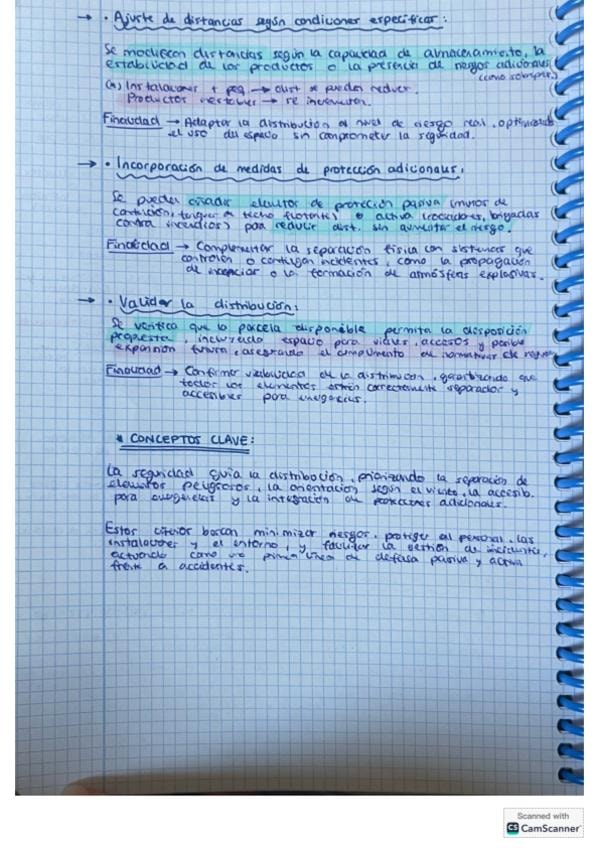 → • Ajuste de distancias según condiciones específicas:
Se modifican distancias según la capacidad de almacenamiento, la
estabilidad de los productos o la presencia de riesgos adicionales
(como sobrepres.)
Instalaciones + peq → dist se pueden reducir.
Productos inestables → se incrementan.
Finalidad → Adaptar la distribución al nivel de riesgo real, optimizando
el uso del espacio sin comprometer la seguridad.
→ • Incorporación de medidas de protección adicionales:
Se pueden añadir elementos de protección pasiva (muros de
contención, tanques techo flotante) o activa (rociadores, brigadas
contra incendios) para reducir dist. sin aumentar el riesgo.
Finalidad → Complementar la separación física con sistemas que
controlen o contengan incidentes, como la propagación
de incendios o la formación de atmósferas explosivas.
→ • Validar la distribución:
Se verifica que la parcela disponible permita la disposición
propuesta, incluyendo espacio para viales, accesos y posible
expansión futura, asegurando el cumplimiento de normativas de
Finalidad → Confirmar viabilidad de la distribución, garantizando que
todos los elementos estén correctamente separados y
accesibles para emergencias.
* CONCEPTOS CLAVE:
La seguridad guía la distribución, priorizando la separación de
elementos peligrosos, la orientación según el viento, la accesib.
para emergencias y la integración de protecciones adicionales.
Estos criterios buscan minimizar riesgos, proteger al personal, las
instalaciones y el entorno, y facilitar la gestión de incidentes,
actuando como una primera línea de defensa pasiva y activa
frente a accidentes.
Scanned with
CS CamScanner